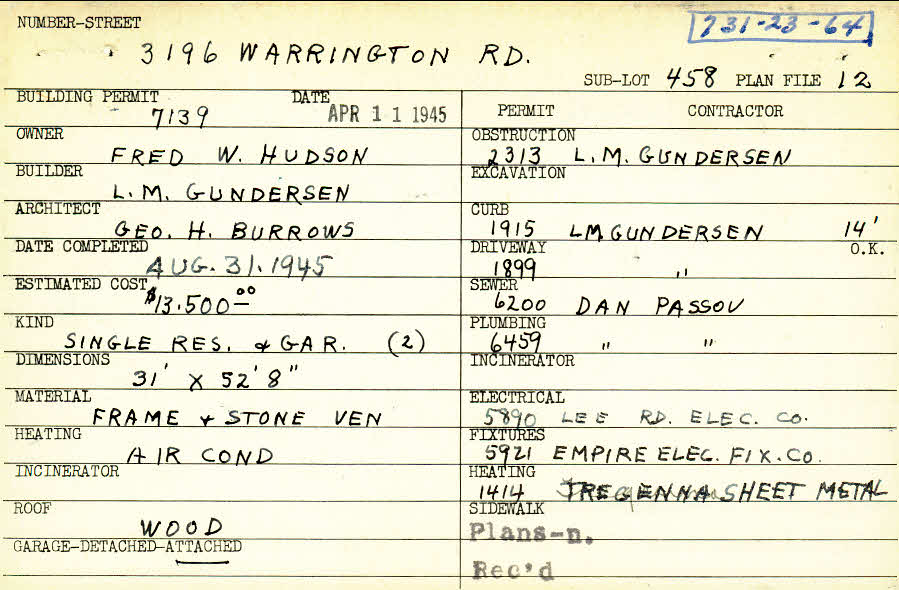 NUMBER-STREET
731-23-64
3196 WARRINGTON RD.
SUB-LOT 458 PLAN FILE 12
BUILDING PERMIT DATE
7139 APR 11 1945
OWNER
FRED W. HUDSON
BUILDER
L.M. GUNDERSEN
ARCHITECT
GEO. H. BURROWS
DATE COMPLETED
AUG. 31. 1945
ESTIMATED COST
$13.500 00
KIND
SINGLE RES. & GAR. (2)
DIMENSIONS
31' X 52' 8"
MATERIAL
FRAME + STONE VEN
HEATING
AIR COND
INCINERATOR
ROOF
WOOD
GARAGE-DETACHED-ATTACHED
PERMIT CONTRACTOR
OBSTRUCTION
2313 L.M. GUNDERSEN
EXCAVATION
CURB
1915 LM GUNDERSEN 14'
DRIVEWAY O.K.
1899 "
SEWER
6200 DAN PASSOV
PLUMBING
6459 " "
INCINERATOR
ELECTRICAL
5890 LEE RD. ELEC. CO.
FIXTURES
5921 EMPIRE ELEC. FIX. CO.
HEATING
1414 TREGENNA SHEET METAL
SIDEWALK
Plans-n.
Rec'd